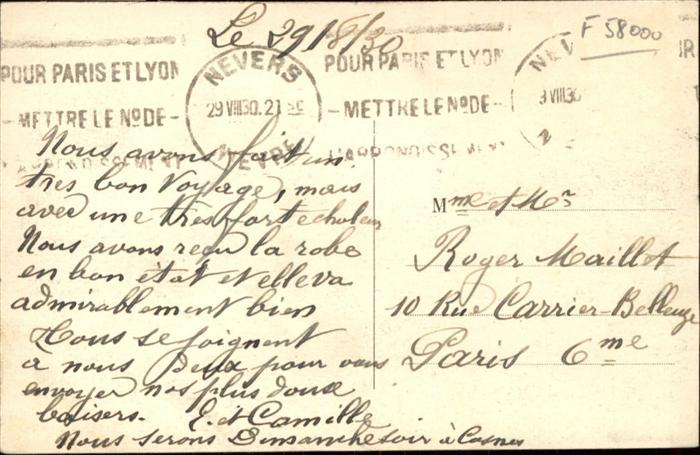 Le 29/8/30
F 58000
POUR PARIS ET LYON
-METTRE LE No DE-
NEVERS
29 VIII30. 21
NIEVRE
POUR PARIS ET LYON
-METTRE LE No DE-
NEV
VIII30
Nous avons fait un
très bon voyage, mais
avec une très forte chaleur
Nous avons reçu la robe
en bon état et elle va
admirablement bien
Tous se joignent
a nous Deux pour vous
envoyer nos plus doux
baisers. E. et Camille
Nous serons Dimanche soir à Cosnes
Mme et Mr
Roger Maillot
10 Rue Carrier-Belleuze
Paris 6me